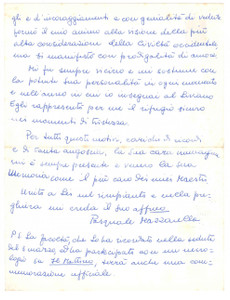 gli e d'incoraggiamenti e con genialità di vedute
formò il mio animo alla visione della più
alta considerazione della Civiltà occidentale
ma si manifestò con prodigalità di amore.
Mi fu sempre vicino e mi sostenne con
la potente sua personalità in ogni momento
e nell'anno in cui io insegnai al
Egli rappresentò per me il rifugio sicuro
nei momenti di tristezza.
Per tutti questi motivi,
e di tanta angoscia, la sua cara immagine
mi è sempre presente e venero la sua
Memoria come il più caro dei miei Maestri
Unito a Lei nel rimpianto e nella
preghiera mi creda il Suo aff.mo
Pasquale Mazzarella
P.S. La Facoltà, che Lo ha ricordato nella seduta
del 5 marzo, ha partecipato con un
su Il Mattino, sarà anche una
commemorazione ufficiale